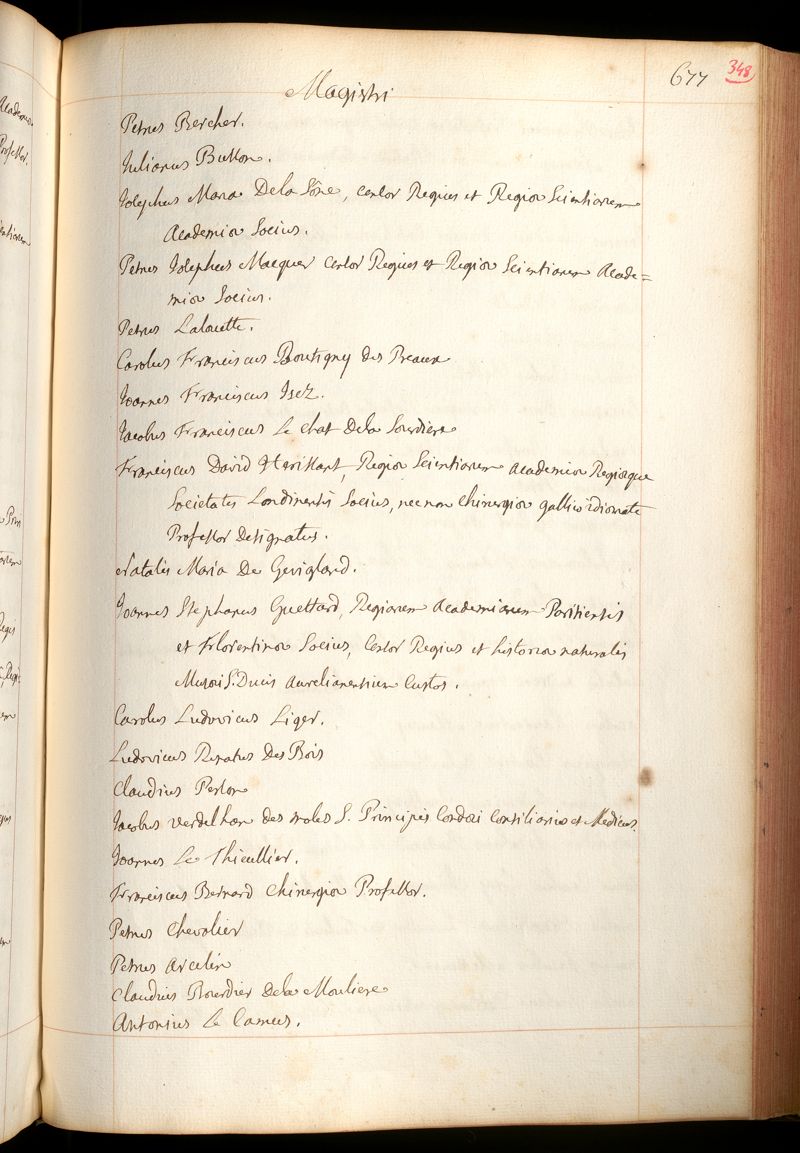 Magistri 677 348
Petrus Bercher.
Julianus Busson.
Josephus Maria De la Sône, Censor Regius et Regiæ Scientiarum
Academiæ Socius.
Petrus Josephus Macquer Censor Regius et Regiæ Scientiarum Acade=
miæ Socius.
Petrus Lalouette.
Carolus Franciscus Boutigny des Preaux
Joannes Franciscus Isez.
Jacobus Franciscus Le Chat De la Sourdiere
Franciscus David Herissant, Regiæ Scientiarum Academiæ Regiæque
Societatis Londinensis Socius, nec non Chirurgiæ gallico idiomate
Professor Designatus.
Natalis Maria De Gevigland.
Joannes Stephanus Guettard, Regiarum Academiarum Parisiensis
et Florentinæ Socius, Censor Regius et historiæ naturalis
Musæi S. Ducis Aurelianensium Custos.
Carolus Ludovicus Liger.
Ludovicus Renatus Des Bois
Claudius Person
Jacobus Verdelhan des moles S. Principis Condæi Consiliarius et Medicus.
Joannes Le Thieullier.
Franciscus Bernard Chirurgiæ Professor.
Petrus Chevalier
Petrus Arcelin
Claudius Bourdier De la Mouliere
Antonius Le Camus.